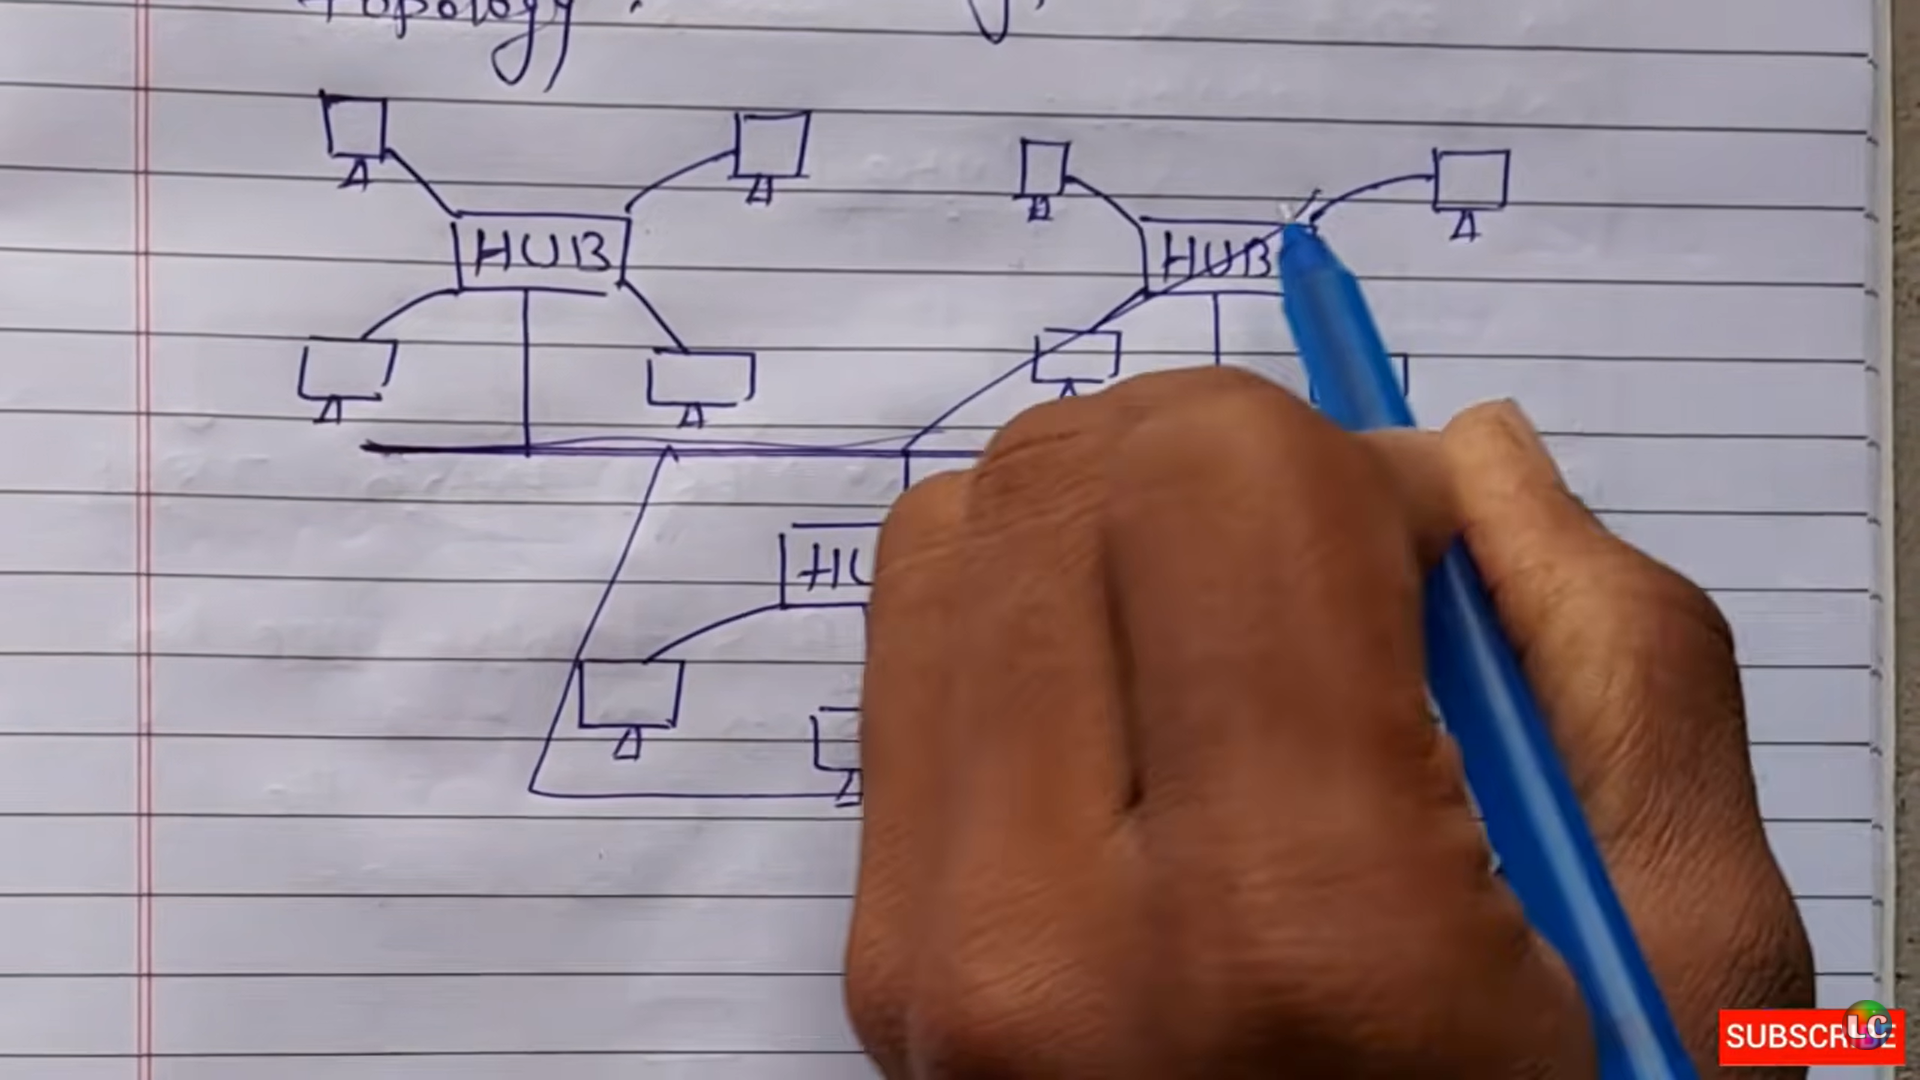 Topology :
HUB
HUB
HU
SUBSCRIBE
LC